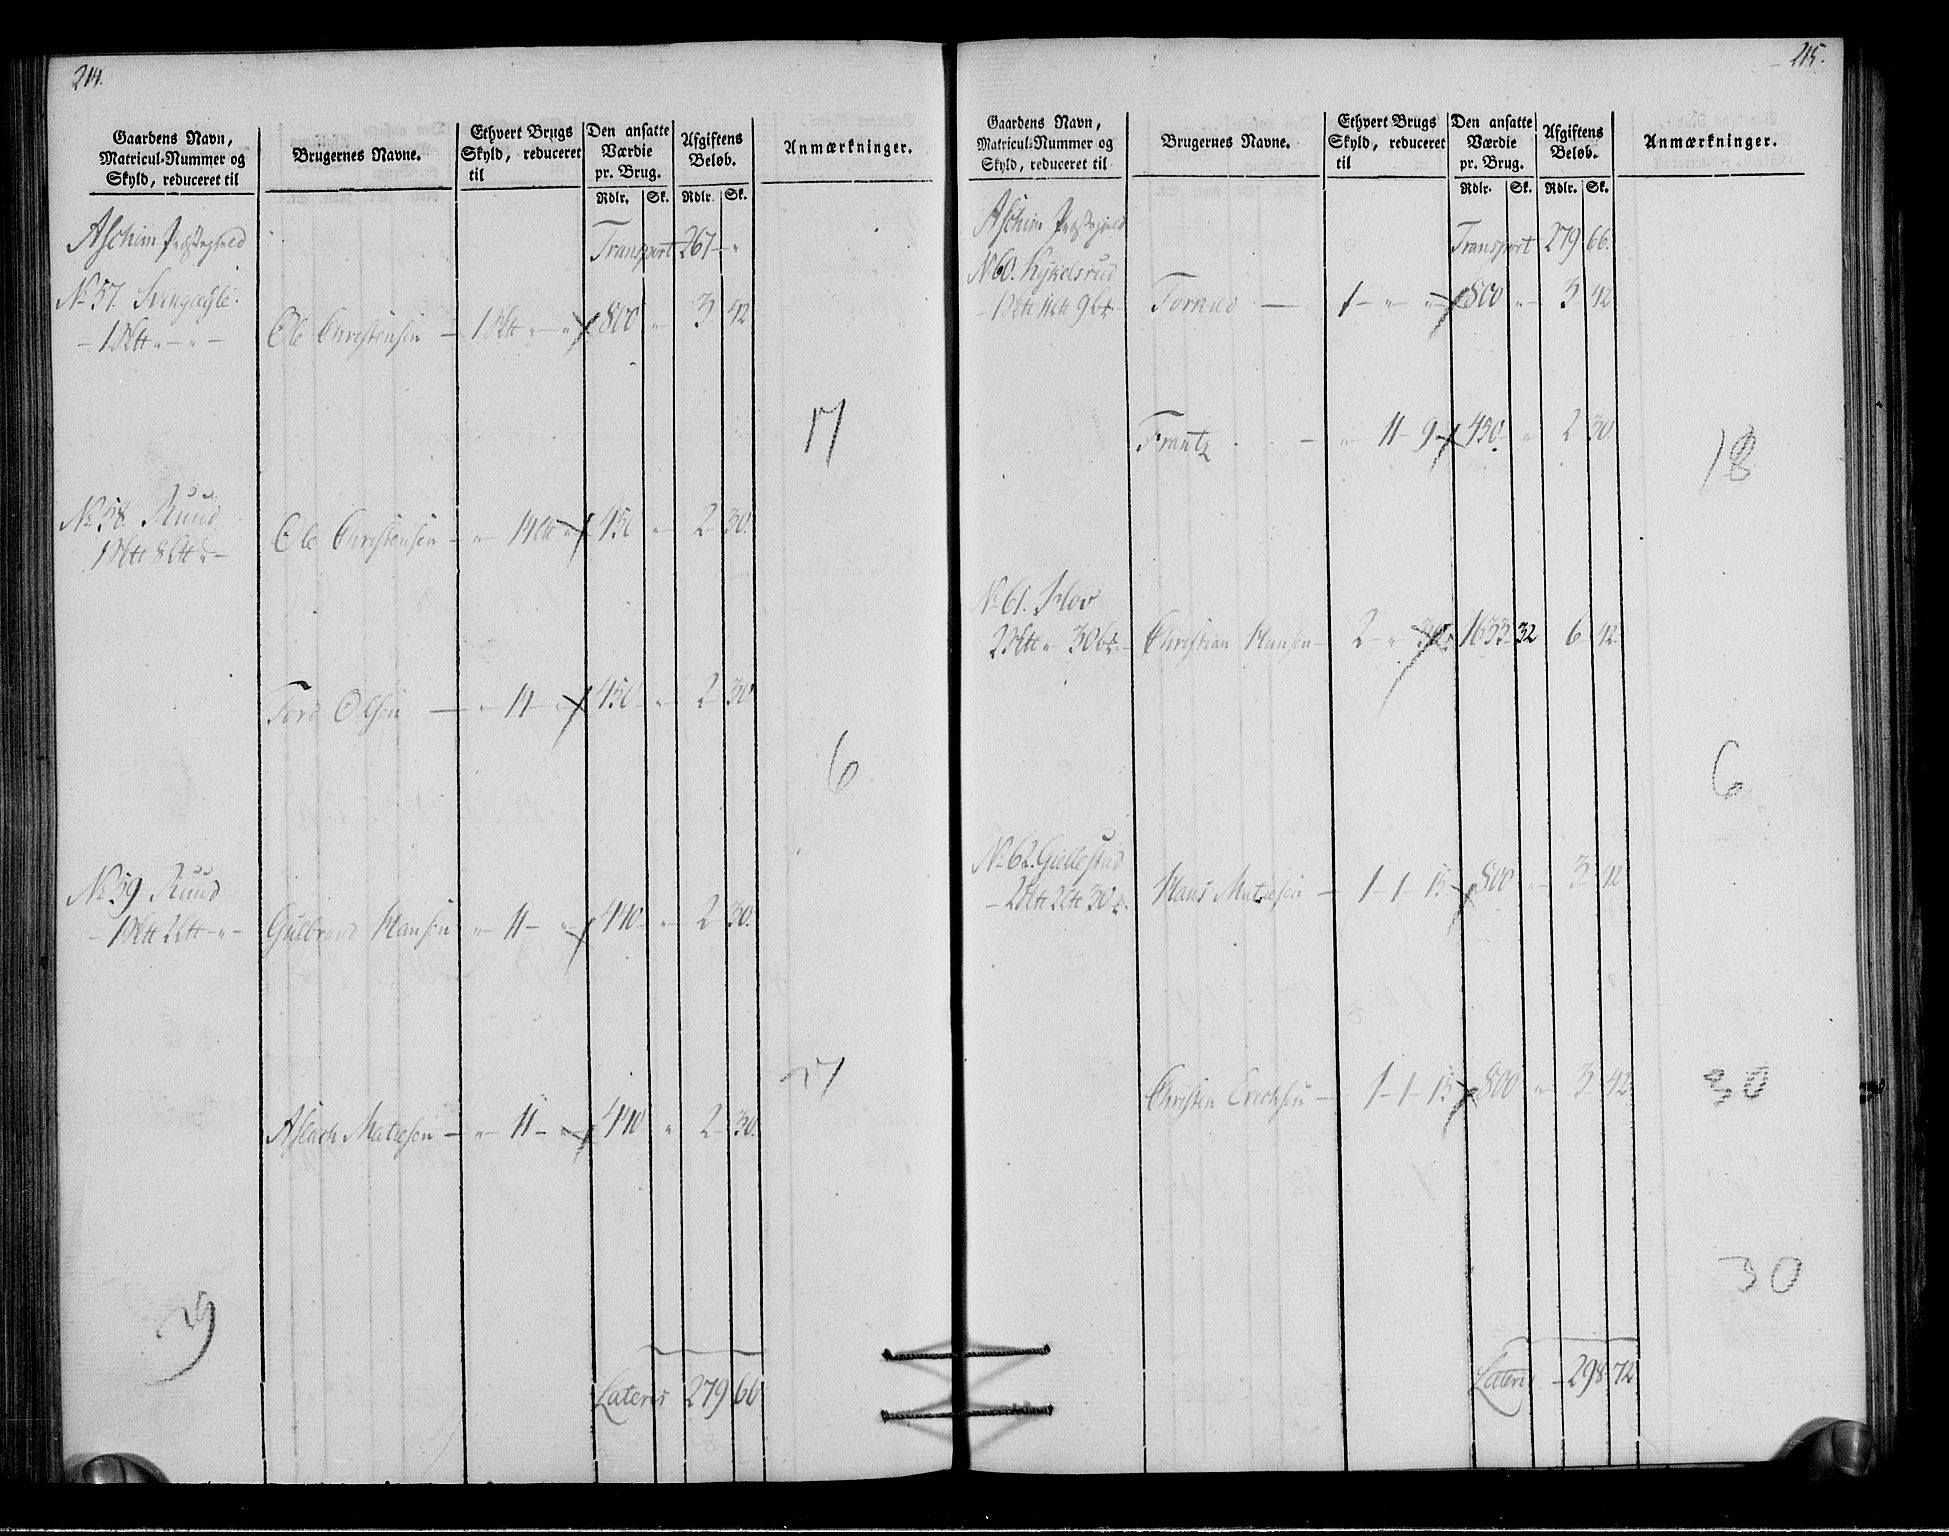 214.
Gaardens Navn, Matricul-Nummer og Skyld, reduceret til | Brugernes Navne. | Ethvert Brugs Skyld, reduceret til | Den ansatte Værdie pr. Brug. Rdlr. Sk. | Afgiftens Beløb. Rdlr. Sk. | Anmærkninger.
Aschim Præstegield Transport 267 - "
No 57.
- 1 " - " - Ole Christensen - 1 " - " 800 " 3 42
17
No 58. Ruud
Ole Christensen - " 14 " 450 " 2 30.
Tord Olsen - " 14 - " 450 " 2 30
6
No 59 Ruud
Gulbrand Hansen " 11 - " 440 - " 2 30.
17
Aslach Matiesen - " 11 - " 440 " 2 30.
29
Lateris 279 66
215.
Gaardens Navn, Matricul-Nummer og Skyld, reduceret til | Brugernes Navne. | Ethvert Brugs Skyld, reduceret til | Den ansatte Værdie pr. Brug. Rdlr. Sk. | Afgiftens Beløb. Rdlr. Sk. | Anmærkninger.
Aschim Præstegield Transport 279 66.
No 60. Kykelsrud
Torkild - 1 - " " 800 " 3 42
Frantz - " 11 - 9 450 - " 2 30.
18
No 61. Hov
Christian Hansen - 2 - " 30 1633 32 6 42
6
No 62. Gullestad
Hans Matiesen - 1 - 1 - 15 800 " 3 42
Christen Erichsen - 1 - 1 - 15 800 " 3 42
30
30
Lateris - 298 72